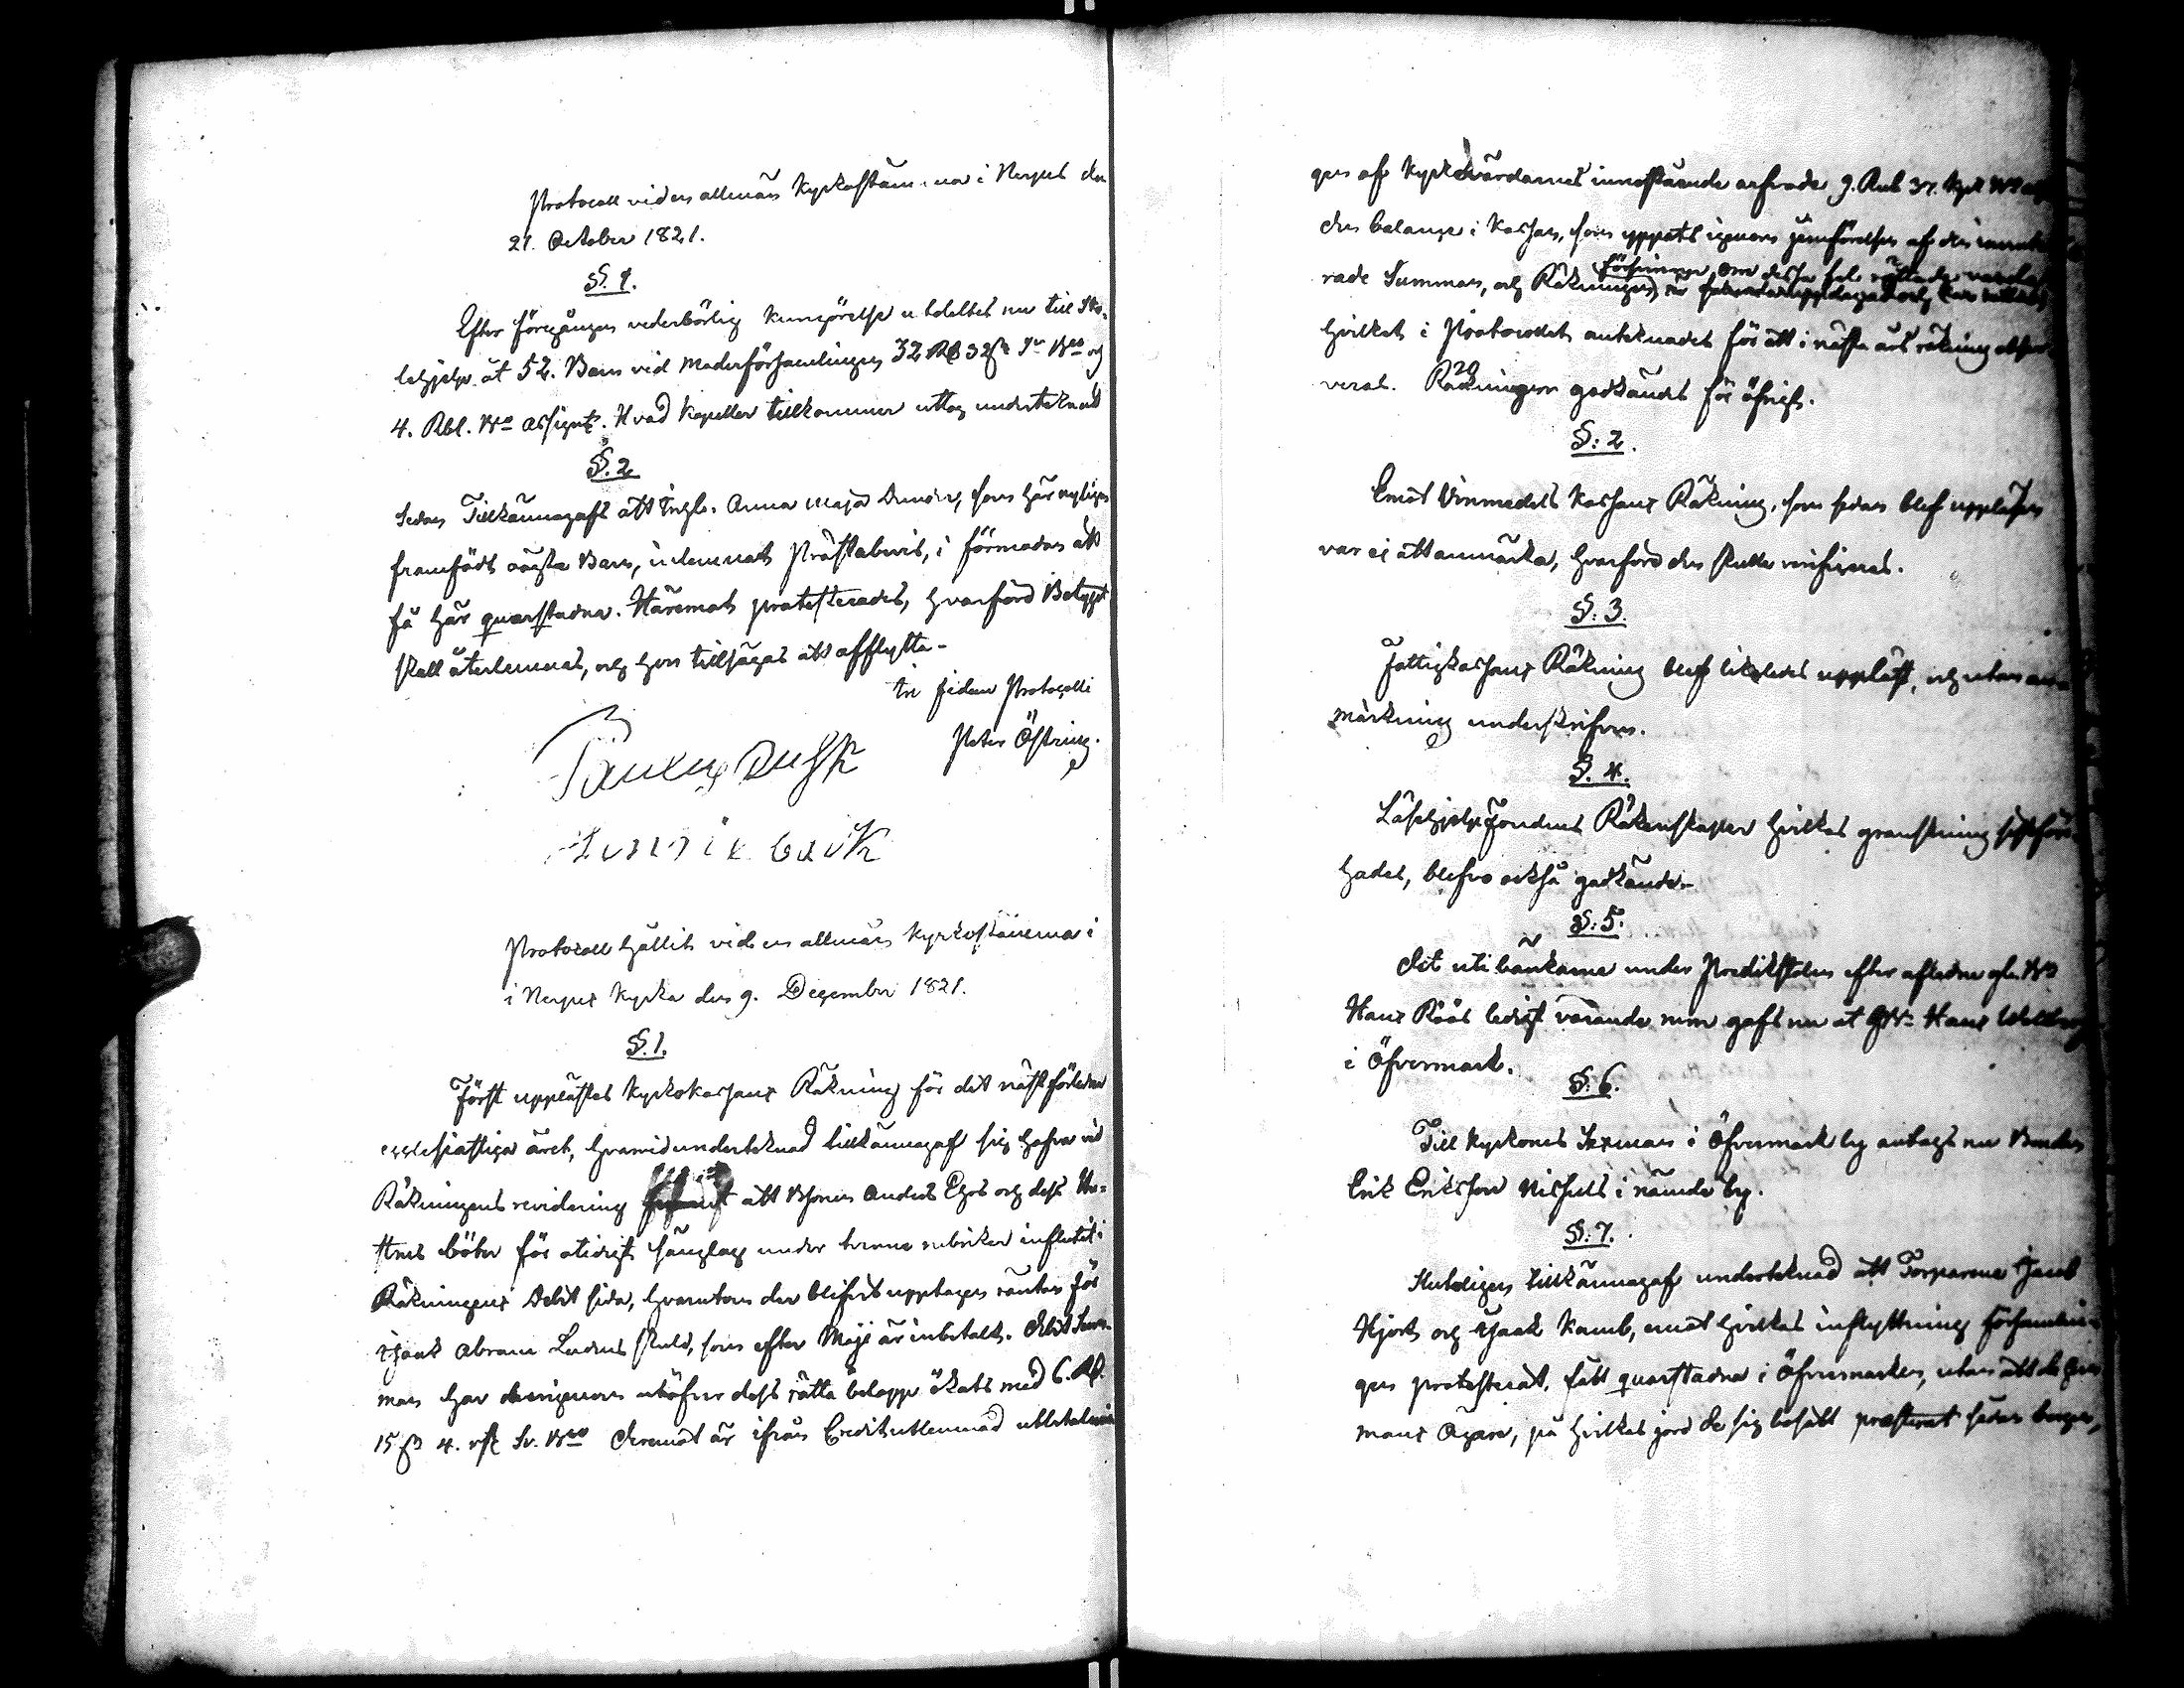 Protocoll vid en allmän Kyrkostämma i Nerpes den
21. October 1821.
§. 1.
Efter föregången vederbörlig kungörelse utdeltes nu till Sko-
lehjelp åt 52. Barn vid Moderförsamlingen 32 Rd 32 sk Sv Bco och
4. Rbl. Bco Assign. Hvad Kapeller tillkommer uttog undertecknad
§. 2
Sedan Tillkännagafs att Inhs. Anna Maja, som här nyligen
framfödt oäkta Barn, inlemnat Prästabevis, i förmodan att
få här quarstadna. Häremot protesterades, hvarförd Betyget
skall återlemnas, och hon tillsägas att afflytta.
In fidem Protocolli
Peter Östring.
Protocoll hållit vid en allmän Kyrkostämma i
i Nerpes Kyrka den 9. December 1821.
§. 1.
Först upplästes Kyrkokassans Räkning för det nästförledne
ecclesiastiga året, hvarvid undertecknad tillkännagaf sig hafva vid
Räkningens revidering att Bsonen Anders Ehrs och dess
böter för otidigt sänglag under denna rubriken influtit i
Räkningens Debit sida, hvarutom der blifvit upptagen räntan för
Isaak Abram skuld, som efter är inbetalt. Debit Sum-
man har derigenom utöfver dess rätta belopp ökats med 6. Rd.
15 sk 4. rst Sv. Bco Deremot är ifrån Credit utlemnad utbetalning
gen af Kyrkovärdarnes innestående arfvode 9. Rub 37. Kop. Bco
den balance i Kassan, som uppstått igenom jemförelsen af den
rade Summan, och Räkningen
hvilket i Protocollet antecknades för att i nästa års räkning obser-
veras. Räkningen godkändes för öfrigt.
§: 2.
Emot Vinmedels Kassans Räkning, som sedan blef uppläsen
var ej att anmärka, hvarföre den skulle verificeras.
§: 3.
Fattigkassans Räkning blef likaledes uppläst, och utan an-
märkning underskrifven.
§. 4.
Läsehjelps Fondens Räkenskaper hvilkas granskning
hades, blefvo också godkände.
§: 5.
Det uti bänkarne under Predikstolen efter afledne
Hans Röös ledigt varande rum gafs nu åt Hans
i Öfvermark.
§: 6.
Till Kyrkones Sexman i Öfvermark by antogs nu Bonden
Erik Eriksson Nissuls i nämde by.
§: 7.
Slutligen tillkännagaf undertecknad att Torparene Jacob
Hjort och Isaak Kamb, emot hvilkas inflyttning Församlin-
gen protesterat, fått quarstadna i Öfvermarken, utan att de
mans Ägare, på hvilkas jord de sig bosatt præsterat